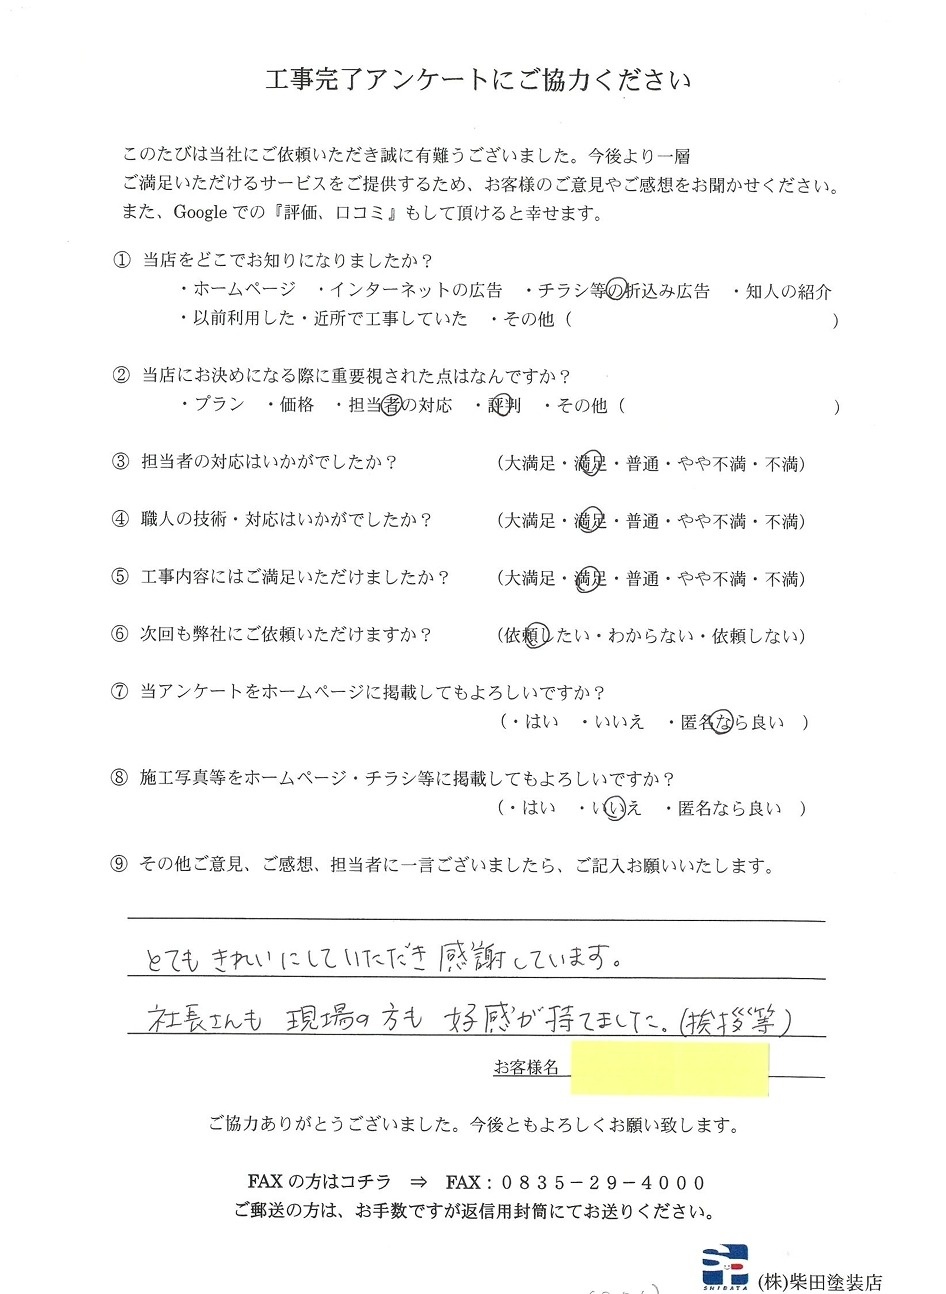 工事完了アンケートにご協力ください
このたびは当社にご依頼いただき誠に有難うございました。今後より一層
ご満足いただけるサービスをご提供するため、お客様のご意見やご感想をお聞かせください。
また、Googleでの『評価、口コミ』もして頂けると幸せます。
① 当店をどこでお知りになりましたか？
・ホームページ ・インターネットの広告 ・チラシ等の折込み広告 ・知人の紹介
・以前利用した・近所で工事していた ・その他（ ）
② 当店にお決めになる際に重要視された点はなんですか？
・プラン ・価格 ・担当者の対応 ・評判 ・その他（ ）
③ 担当者の対応はいかがでしたか？ （大満足・満足・普通・やや不満・不満）
④ 職人の技術・対応はいかがでしたか？ （大満足・満足・普通・やや不満・不満）
⑤ 工事内容にはご満足いただけましたか？ （大満足・満足・普通・やや不満・不満）
⑥ 次回も弊社にご依頼いただけますか？ （依頼したい・わからない・依頼しない）
⑦ 当アンケートをホームページに掲載してもよろしいですか？
（・はい ・いいえ ・匿名なら良い ）
⑧ 施工写真等をホームページ・チラシ等に掲載してもよろしいですか？
（・はい ・いいえ ・匿名なら良い ）
⑨ その他ご意見、ご感想、担当者に一言ございましたら、ご記入お願いいたします。
とても きれいにしていただき 感謝しています。
社長さんも 現場の方も 好感が持てました。(挨拶等)
お客様名
ご協力ありがとうございました。今後ともよろしくお願い致します。
FAXの方はコチラ ⇒ FAX：０８３５－２９－４０００
ご郵送の方は、お手数ですが返信用封筒にてお送りください。
SHIBATA (株)柴田塗装店